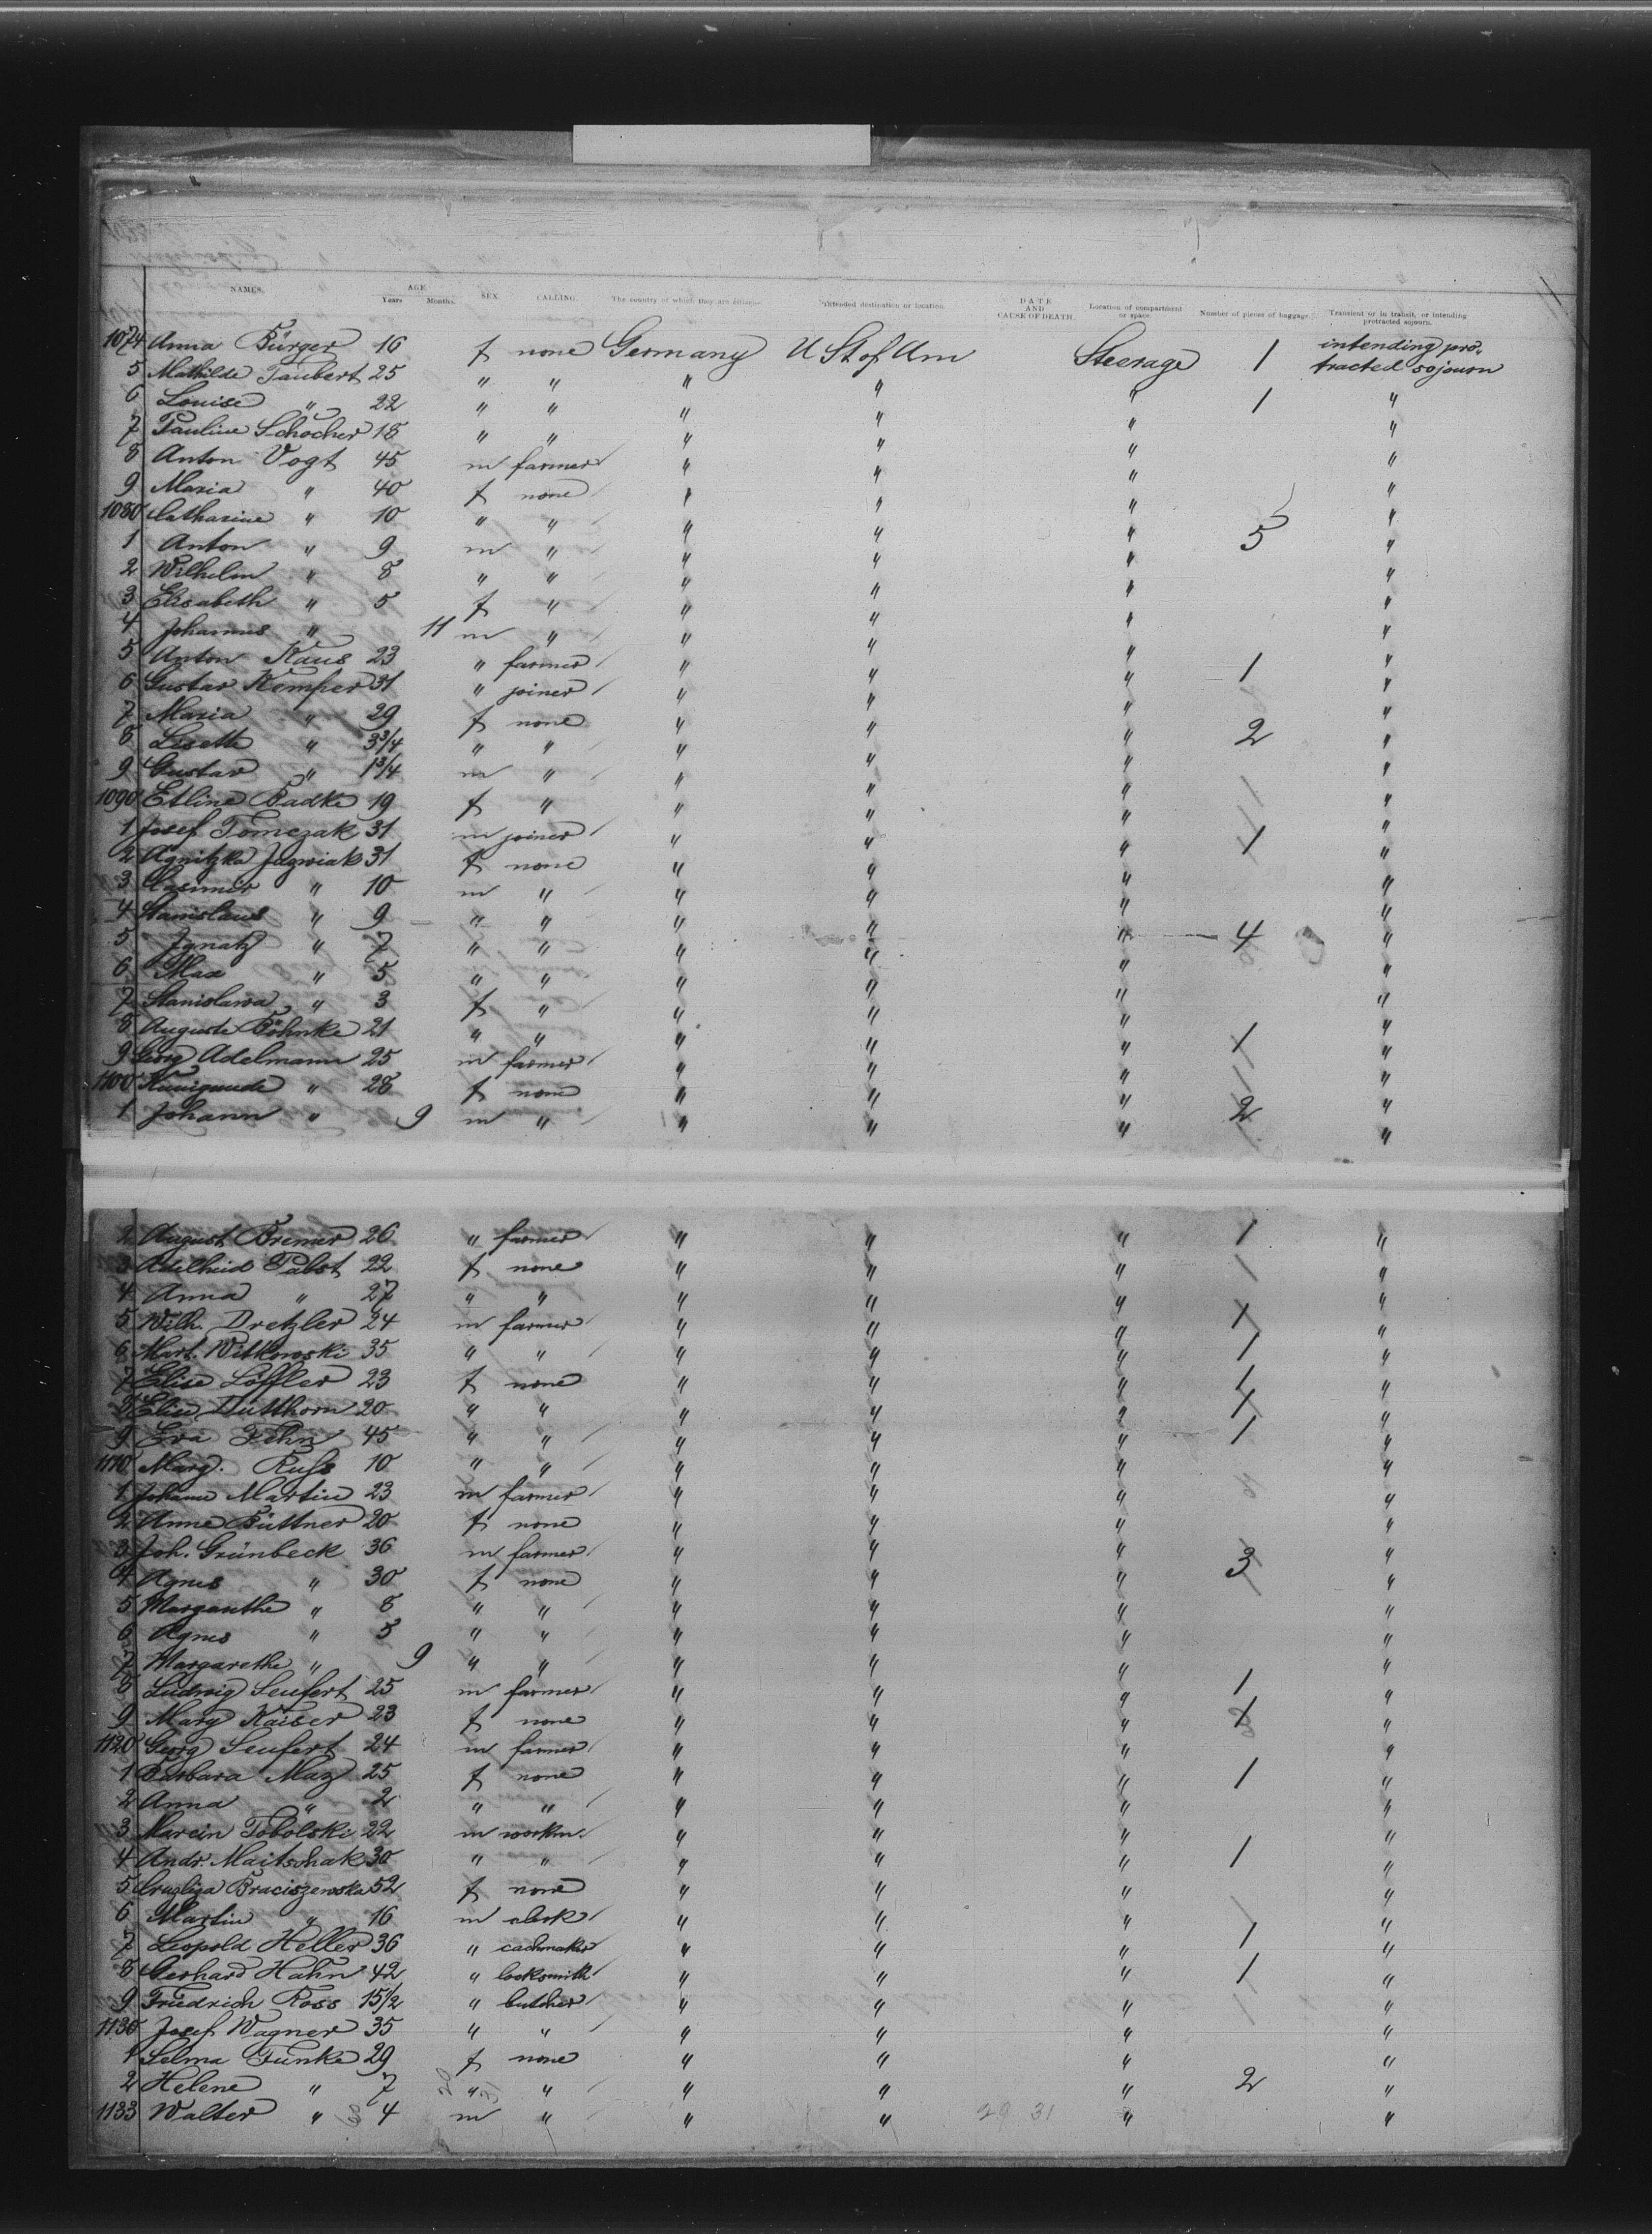 NAMES. AGE Years Months. SEX. CALLING. The country of which they are citizens. Intended destination or location. DATE AND CAUSE OF DEATH. Location of compartment or space. Number of pieces of baggage. Transient or in transit, or intending protracted sojourn.
1074 Anna Bürger 16 f none Germany U St of Am Steerage 1 intending pro-
5 Mathilde Taubert 25 " " " " tracted sojourn
6 Louise " 22 " " " " " 1 "
7 Pauline Schocher 18 " " " " " "
8 Anton Vogt 45 m farmer " " " "
9 Maria " 40 f none " " " "
1080 Catharine " 10 " " " " " "
1 Anton " 9 m " " " " 5 "
2 Wilhelm " 8 " " " " " "
3 Elisabeth " 5 f " " " " "
4 Johannes " 11 m " " " " "
5 Anton Kaus 23 " farmer " " " 1 "
6 Gustav Kemper 31 " joiner " " " "
7 Maria " 29 f none " " " "
8 Lisette " 3 3/4 " " " " " 2 "
9 Gustav " 1 3/4 m " " " " "
1090 Etline Radke 19 f " " " " 1 "
1 Josef Tomczak 31 m joiner " " " 1 "
2 Agnitzka Jagwiak 31 f none " " " "
3 Kasimir " 10 m " " " " "
4 Stanislaus " 9 " " " " " "
5 Ignatz " 7 " " " " " 4 "
6 Max " 5 " " " " " "
7 Stanislawa " 3 f " " " " "
8 Auguste Böhnke 21 " " " " " 1 "
9 Georg Adelmann 25 m farmer " " " "
1100 Kunigunde " 28 f none " " " "
1 Johann " 9 m " " " " 2 "
2 August Bremer 26 " farmer " " " 1 "
3 Adelheid Pabst 22 f none " " " 1 "
4 Anna " 27 " " " " " "
5 Wilh. Dretzler 24 m farmer " " " 1 "
6 Mart. Witkowski 35 " " " " " 1 "
7 Elise Löffler 23 f none " " " 1 "
8 Elise Dutthorn 20 " " " " " 1 "
9 Eva Fehn 45 " " " " " 1 "
1110 Marg. Russ 10 " " " " " "
1 Johann Martin 23 m farmer " " " "
2 Anne Büttner 20 f none " " " "
3 Joh. Grünbeck 36 m farmer " " " 3 "
4 Agnes " 30 f none " " " "
5 Margarethe " 8 " " " " " "
6 Agnes " 5 " " " " " "
7 Margarethe " 9 " " " " " "
8 Ludwig Seufert 25 m farmer " " " 1 "
9 Marg Kaiser 23 f none " " " 1 "
1120 Georg Seufert 24 m farmer " " " "
1 Barbara May 25 f none " " " 1 "
2 Anna " 2 " " " " " "
3 Marcin Tobolski 22 m workm. " " " "
4 Andr. Maitschak 30 " " " " " 1 "
5 Braciszewska 52 f none " " " "
6 Martin " 16 m clerk " " " "
7 Leopold Heller 36 " cachmaker " " " 1 "
8 Gerhard Hahn 42 " locksmith " " " 1 "
9 Friedrich Ross 15 1/2 " butcher " " " 1 "
1130 Josef Wagner 35 " " " " " "
1 Selma Funke 29 f none " " " "
2 Helene " 7 " " " " " 2 "
1133 Walter " 4 m " " " 29 31 " "